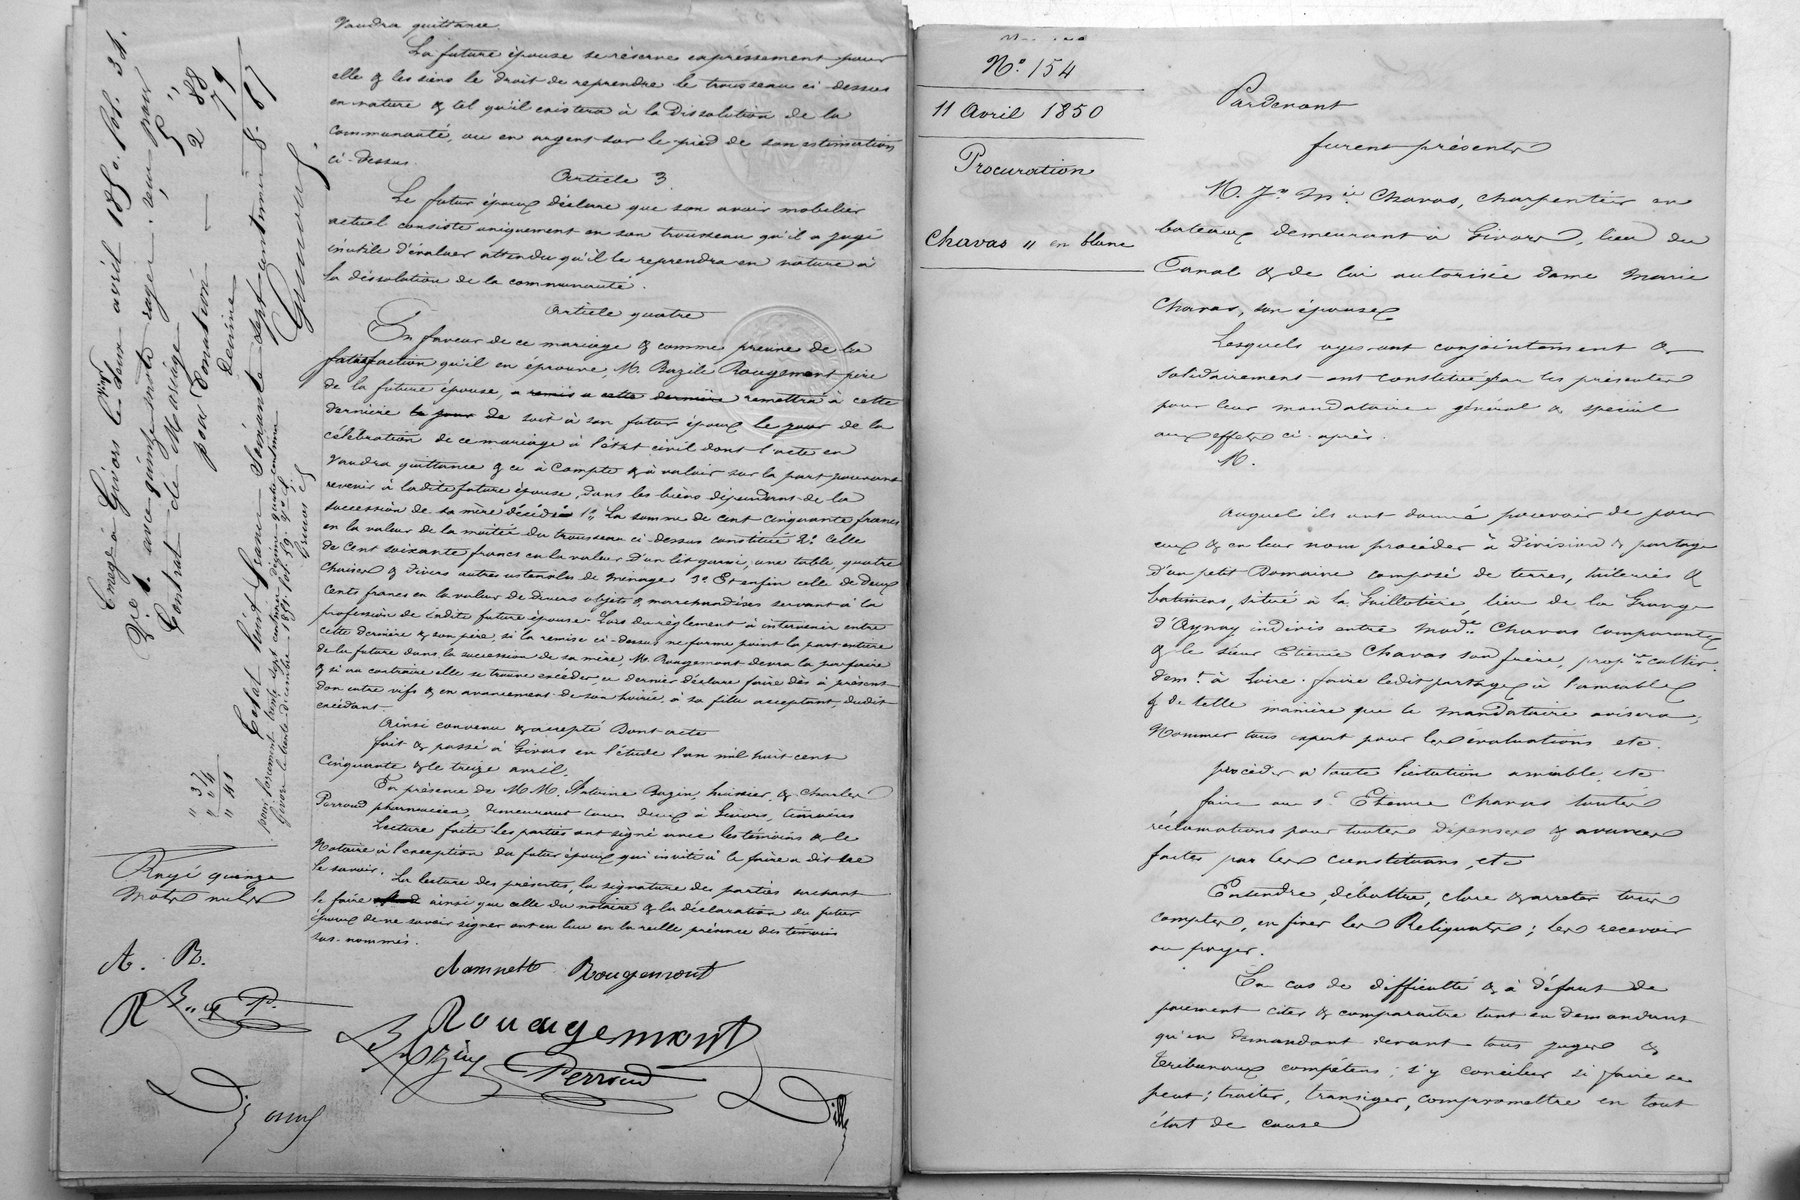 Vaudra quittance
La future épouse se réserve expressément pour
elle & les siens le droit de reprendre le trousseau ci-dessus
en nature & tel qu'il existera à la Dissolution de la
communauté, ou en argent sur le pied de son estimation
ci-dessus.
Article 3.
Le futur époux déclare que son avoir mobilier
actuel consiste uniquement en son trousseau qu'il a jugé
inutile d'évaluer attendu qu'il le reprendra en nature à
la dissolution de la communauté.
Article quatre
En faveur de ce mariage & comme preuve de la
satisfaction qu'il en éprouve, M. Bazile Rougemont père
de la future épouse, a remis a cette dernière remettra à cette
dernière le jour de soit à son futur époux le jour de la
célébration de ce mariage à l'état civil dont l'acte en
Vaudra quittance & ce à compte & à valoir sur la part pouvant
revenir à ladite future épouse, dans les biens dépendant de la
succession de sa mère décédée 1° La somme de cent cinquante francs
en la valeur de la moitié du trousseau ci-dessus constitué 2° Celle
de Cent soixante francs en la valeur D'un lit garni, une table, quatre
chaises & divers autres ustensiles de ménage 3° Et enfin celle de Deux
Cents francs en la valeur de Divers objets & marchandises servant à la
profession de ladite future épouse. Lors du règlement à intervenir entre
cette dernière & son père, si la remise ci-dessus ne forme point la part entière
de la future dans la succession de sa mère, M. Rougemont devra la parfaire
& si au contraire elle se trouve excéder, ce dernier déclare faire dès à présent
don entre vifs & en avancement de son hoirie, à sa fille acceptant, dudit
excédant.
Ainsi convenu & accepté Dont acte
fait & passé à Givors en l'étude l'an mil huit cent
Cinquante & le treize avril.
En présence de MM. Antoine Bazin, huissier, & Charles
Perroud pharmacien, demeurant tous deux à Givors, témoins
Lecture faite les parties ont signé avec les témoins & le
Notaire à l'exception du futur époux qui invité à le faire a dit ne
le savoir.
La lecture des présentes, la signature des parties sachant
le faire ainsi que celle du notaire & la déclaration du futur
époux de ne savoir signer ont eu lieu en la réelle présence des témoins
sus-nommés.
Rougemont
Rougemont
Perroud
Enregt à Givors le vingt deux avril 1850. fol. 31.
avec quinze mots rayés: reçu pour
Contrat de Mariage 5 "
pour Donation 2 88
Décime 79
C'est huit francs Soixante sept centimes 8. 67
" 37
" 4
" 41
Rayé quinze
mots nuls
A. R.
R
N° 154
11 Avril 1850
Procuration
Chavas " en blanc
Pardevant
furent présents
M. Jn Mie Chavas, charpentier en
bateaux demeurant à Givors, lieu du
Canal & de lui autorisée dame Marie
Chavas, son épouse
Lesquels agissant conjointement &
solidairement ont constitué par les présentes
pour leur mandataire général & spécial
aux effets ci-après.
M.
Auquel ils ont donné pouvoir de pour
eux & en leur nom procéder à division & partage
D'un petit Domaine composé de terres, tuileries &
batimens, situé à la Guillotière, lieu de la Grange
d'Aynay indivis entre Made Chavas comparante
& le sieur Etienne Chavas son frère, propre cultir
demt à Loire. faire ledit partage à l'amiable
& de telle manière que le mandataire avisera;
Nommer tous expert pour les évaluations etc.
procéder à toute licitation amiable, etc
faire au sr Etienne Chavas toutes
réclamations pour toutes dépenses & avances
faites par les constituans, etc
Entendre, débattre, clore & arreter tous
comptes, en fixer les Reliquats; les recevoir
ou payer.
En cas de difficulté & à défaut de
paiement citer & comparaître tant en demandant
qu'en demandant devant tous juges &
tribunaux compétens; s'y concilier si faire se
peut; traiter, transiger, compromettre en tout
état de cause